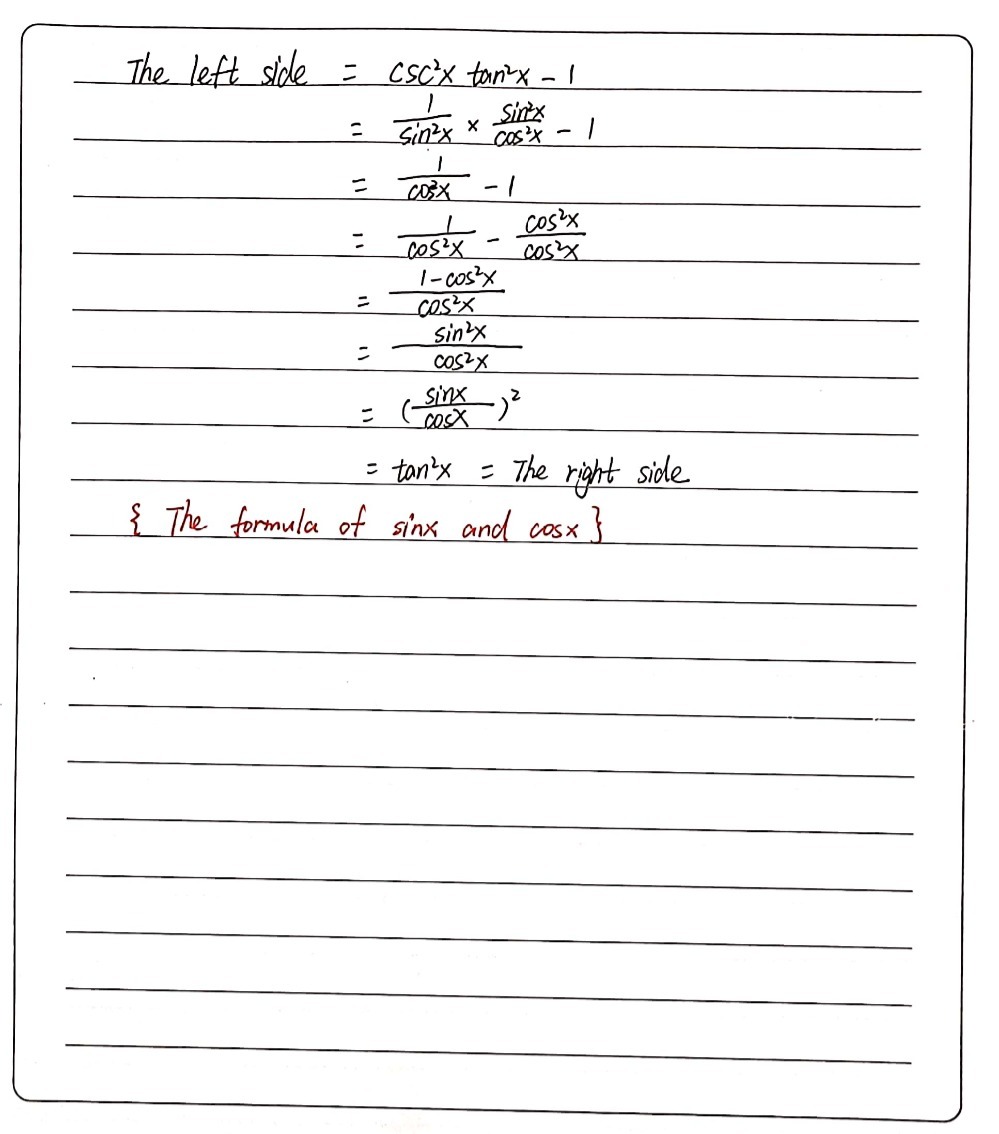 The left side = csc²x tan²x - 1
= 1/sin²x × sin²x/cos²x - 1
= 1/cos²x - 1
= 1/cos²x - cos²x/cos²x
= (1-cos²x)/cos²x
= sin²x/cos²x
= (sinx/cosx)²
= tan²x = The right side
{ The formula of sinx and cosx }